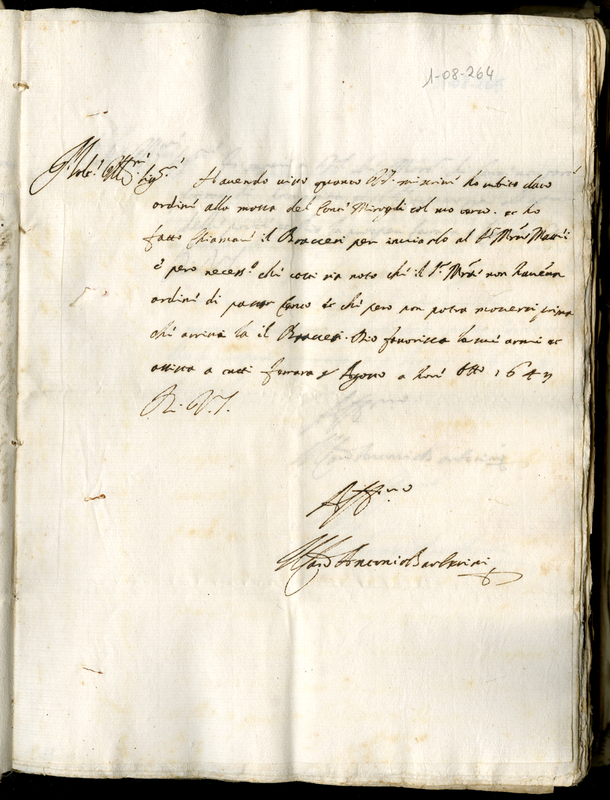 1-08-264
Havendo visto quanto V.S. mi scrive ho subito dato
ordine alla mossa del Conte Miroglii col suo corpo. et ho
fatto chiamare il Bracesi per inviarlo al Sr. March. Mattei
è però necesso. che costì sia noto che il Sr. March. non haveva
ordine di passar Cento et che però non potrà moversi prima
che arrivi là il Bracesi. Dio favorisca le sue armi et
assista a tutti Ferrara 8 Agosto a hore 1643
D. V.S.
Affmo
Il Card Antonio Barberini